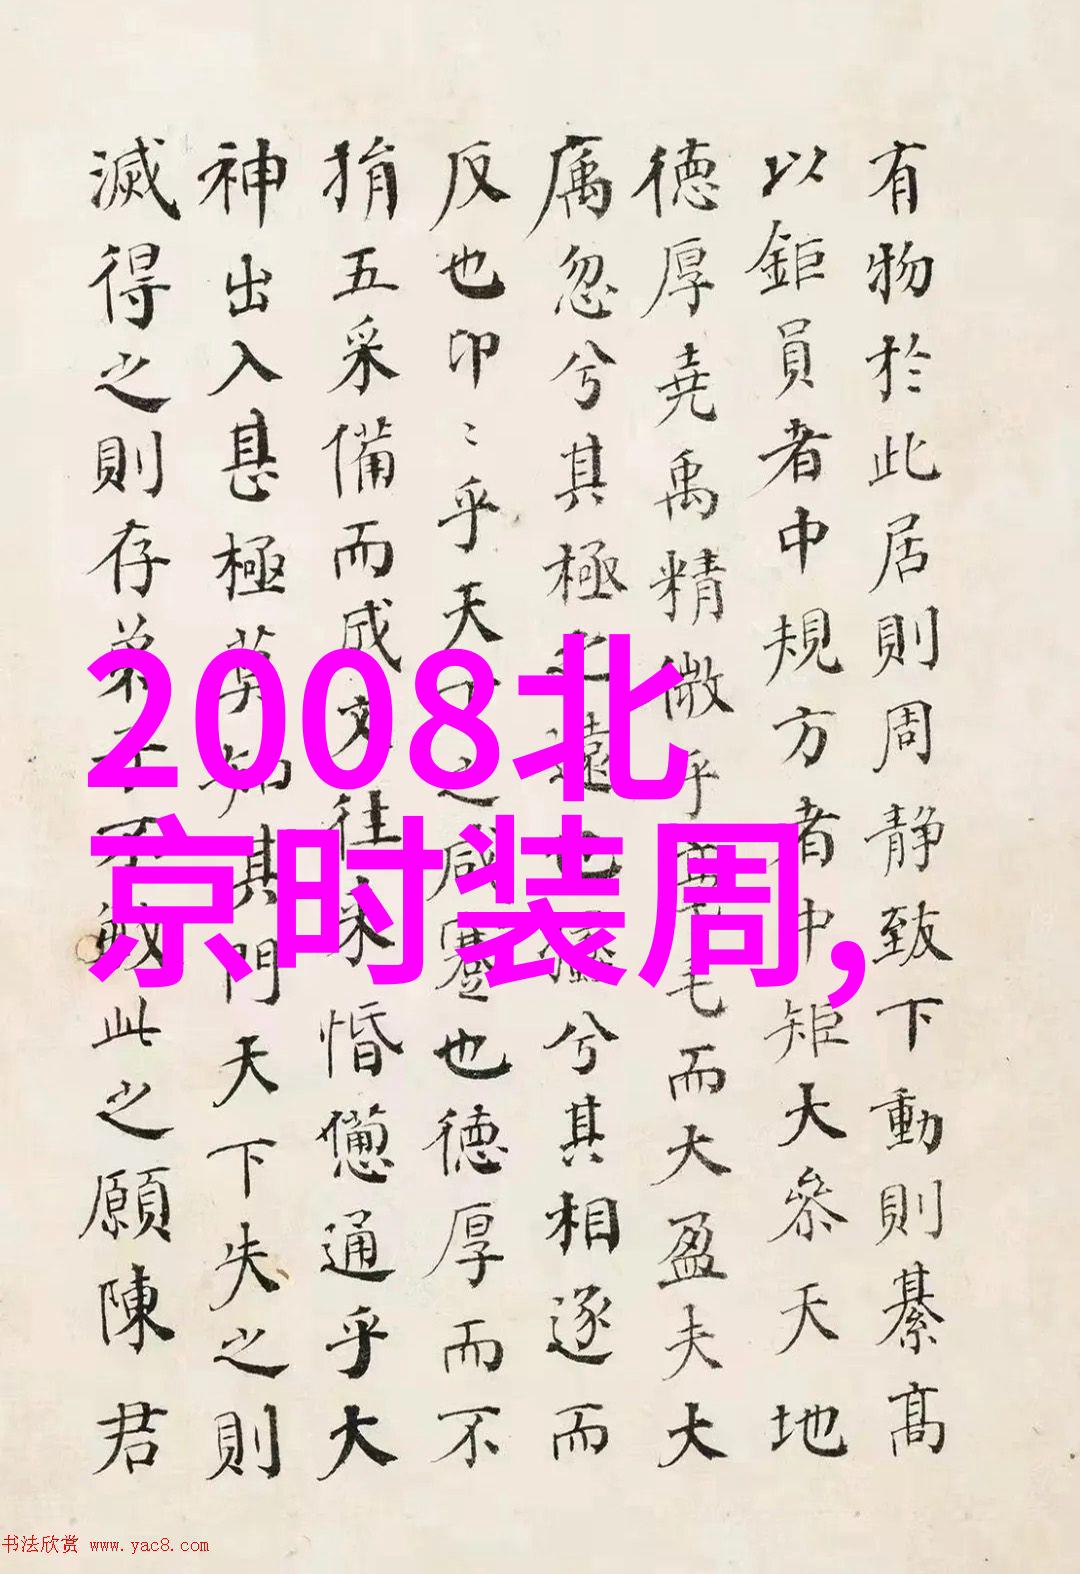 有物於此居則周静致下動則綦高
以鉅員者中規方者中矩大參天地
德厚堯禹精微乎毫毛而大盈夫大
厲忽兮其極之遠也兮其相逐而
反也卬〻乎天下之咸蹇也德厚而不
捐五采備而成文往來惛憊通乎大
神出入甚極莫知其門天下失之則
滅得之則存弟子不敏此之願陳君
2008北
京时装周,
书法欣赏 www.yac8.com